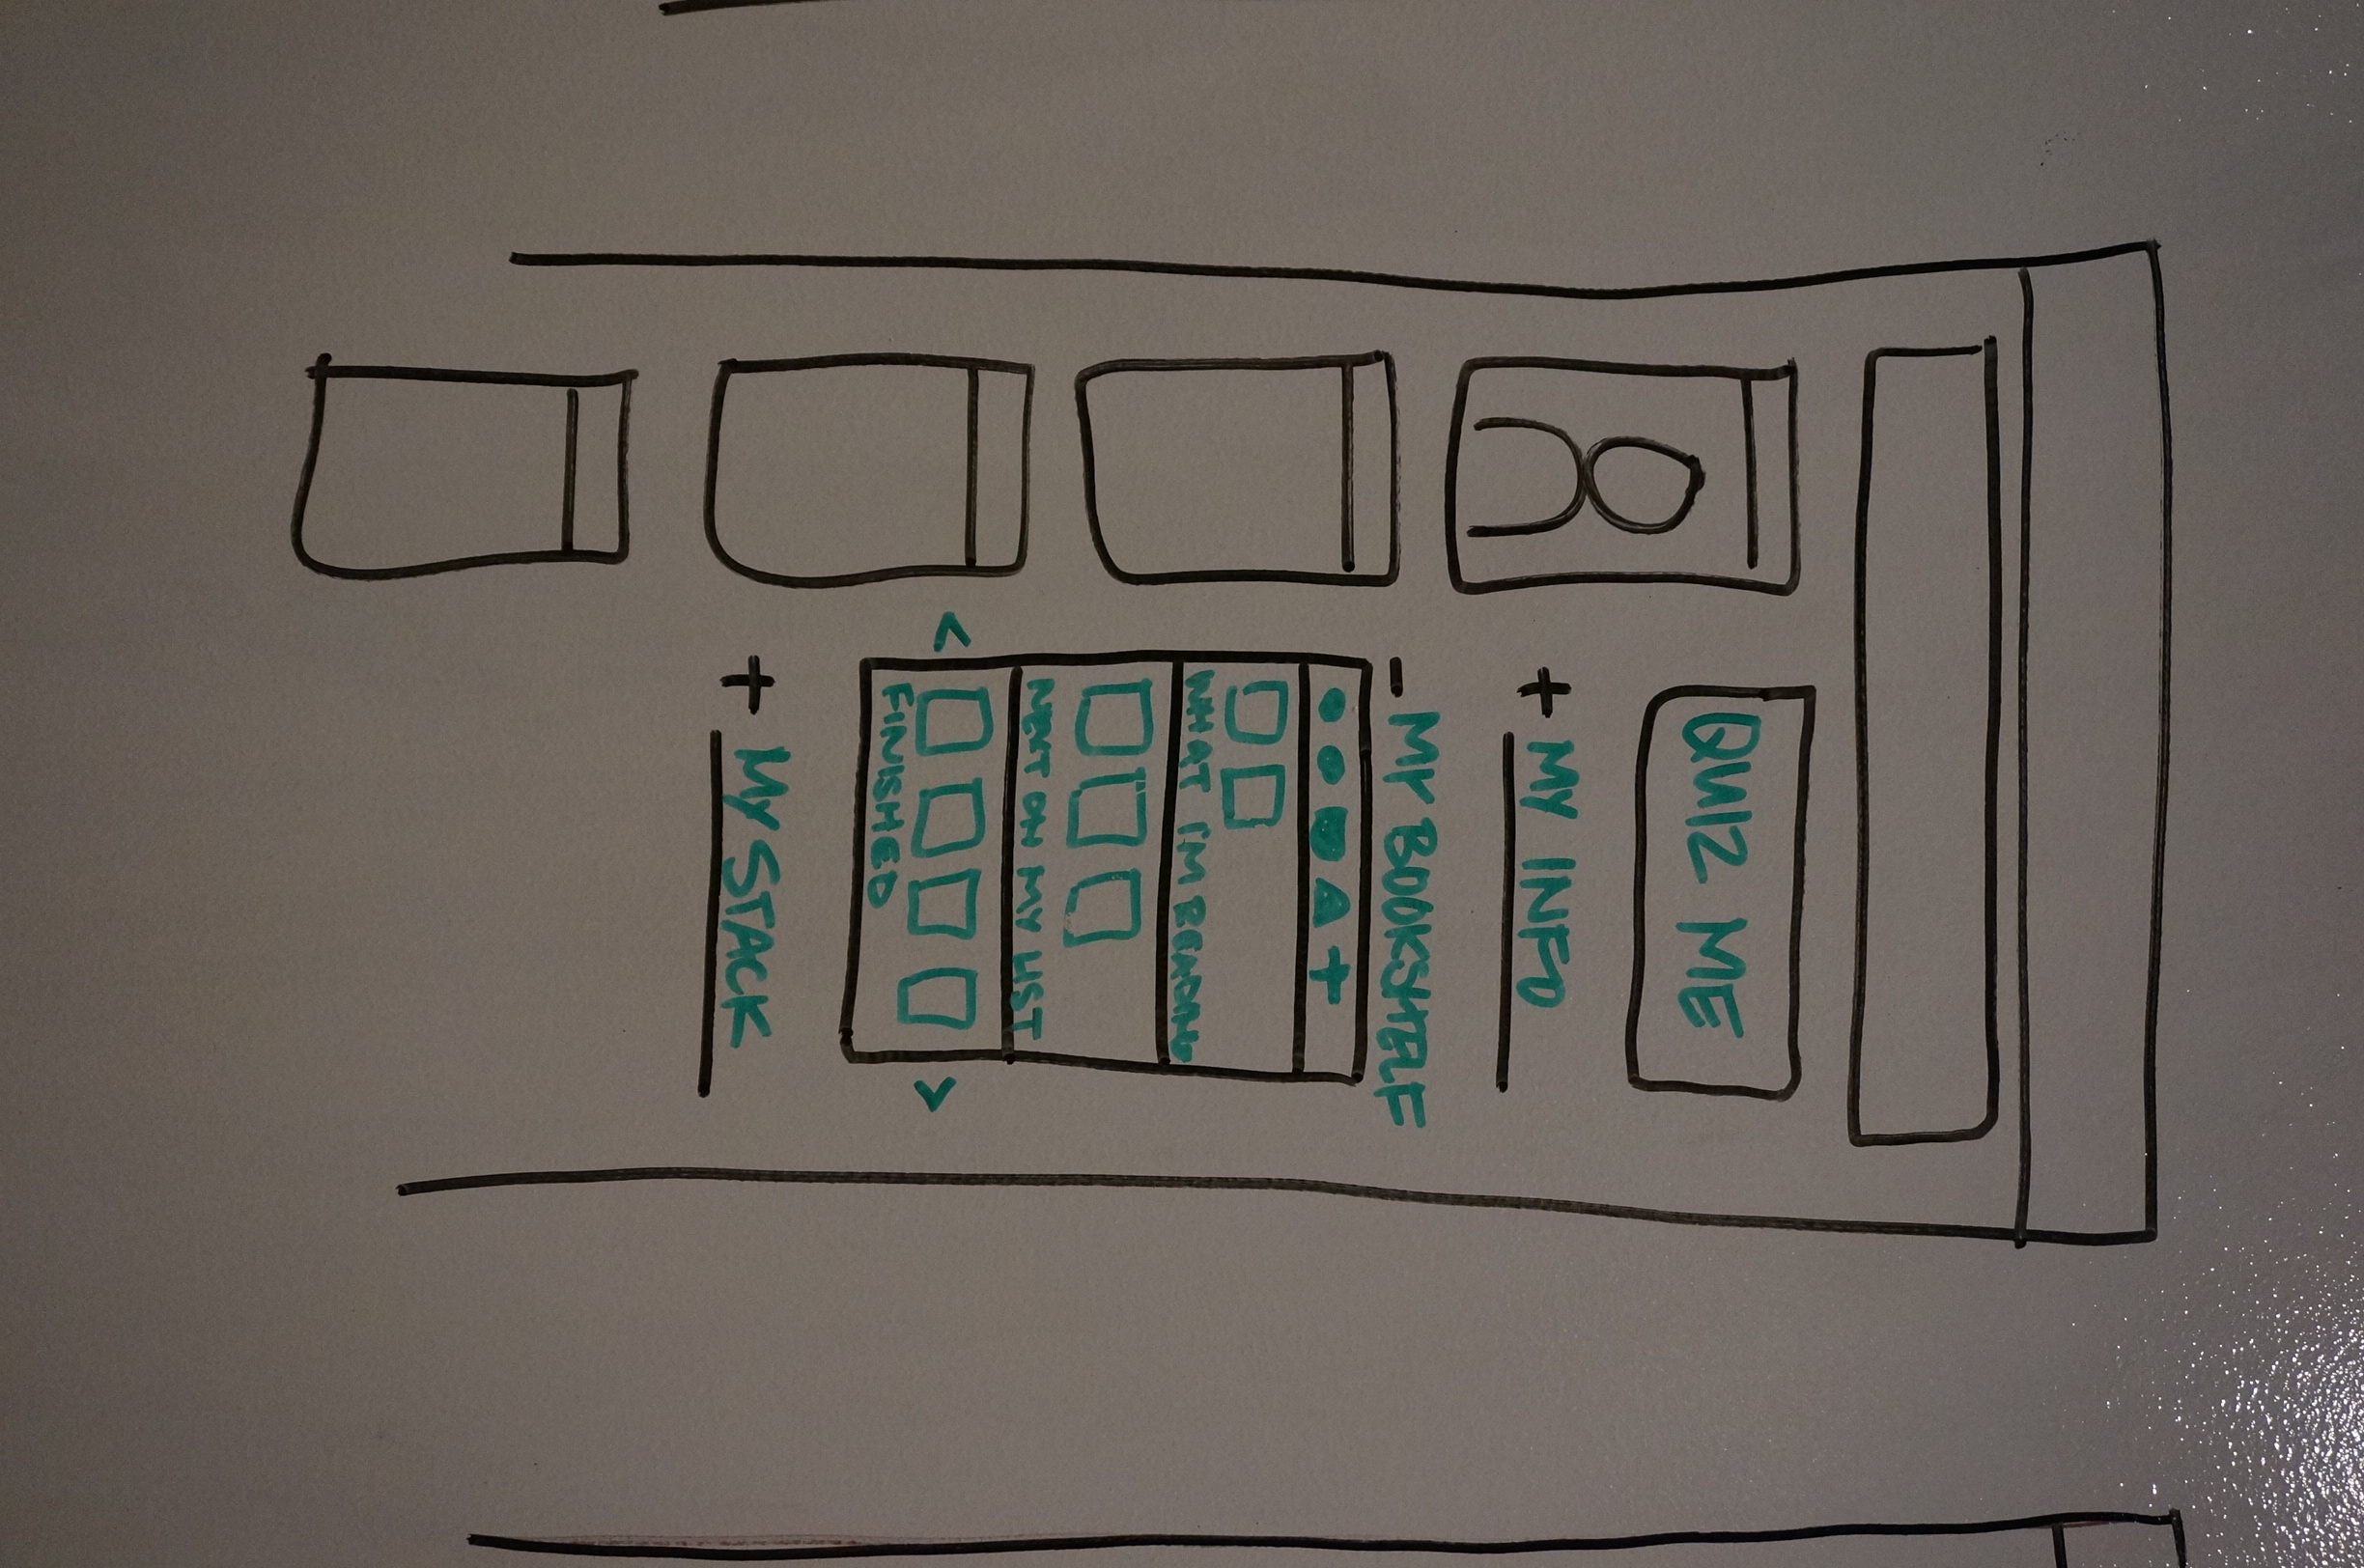 QUIZ ME
+ MY INFO
- MY BOOKSHELF
WHAT I'M READING
NEXT ON MY LIST
< >
FINISHED
+ MY STACK